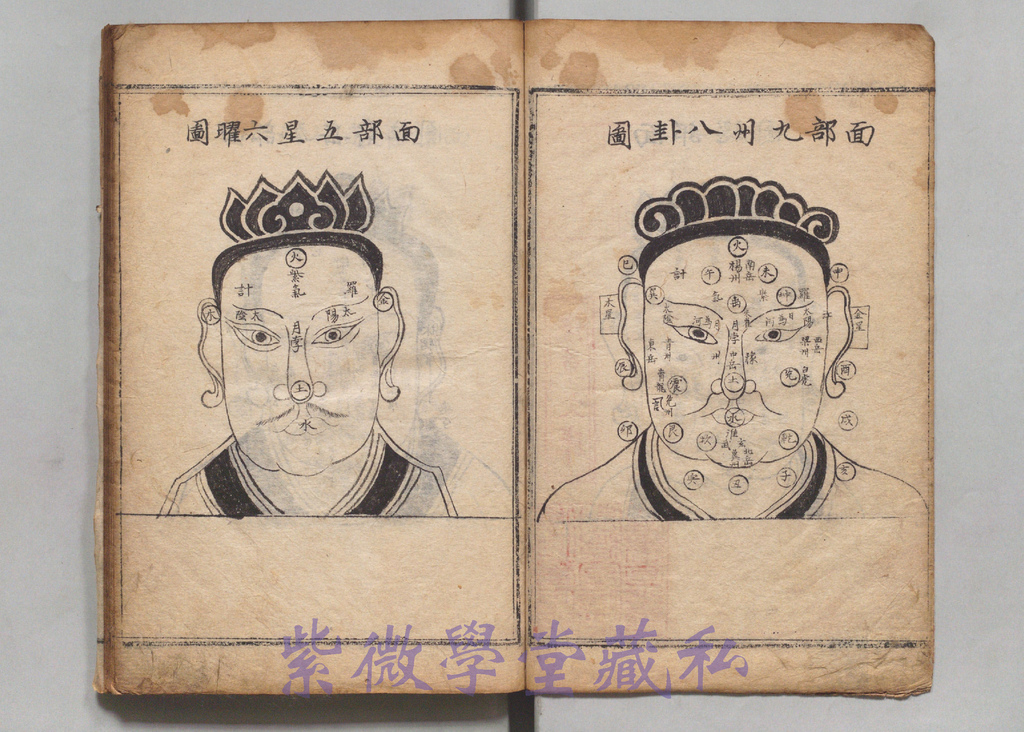 面部九州八卦圖
火
南岳
揚州
計
午
未
巳
申
巽
離
坤
羅
紫
氣
木星
金星
太陰
太陽
月孛
河
江
東岳
青州
中岳
土
西岳
梁州
白虎
兌
辰
酉
震
青龍
兗州
水
卯
戌
艮
坎
乾
北岳
冀州
亥
寅
丑
子
面部五星六曜圖
火
紫氣
計
羅
木
金
太陰
太陽
月孛
土
水
紫微學堂藏私